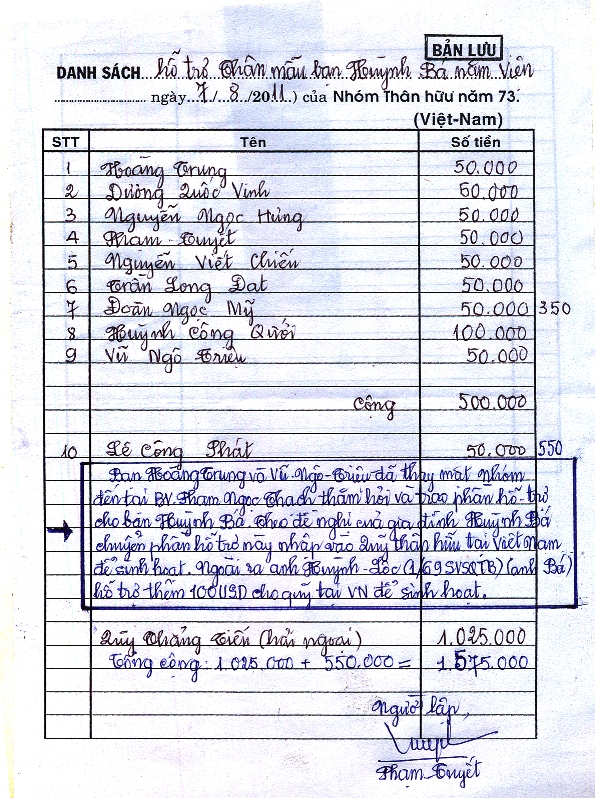 BẢN LƯU
DANH SÁCH hỗ trợ Thân mẫu bạn Huỳnh Bá nằm Viện
ngày 7/8/2011) của Nhóm Thân hữu năm 73.
(Việt-Nam)
STT Tên Số tiền
1 Hoàng Trung 50.000
2 Dương Quốc Vinh 50.000
3 Nguyễn Ngọc Hùng 50.000
4 Phạm - Tuyết 50.000
5 Nguyễn Viết Chiến 50.000
6 Trần Long Đạt 50.000
7 Đoàn Ngọc Mỹ 50.000 350
8 Huỳnh Công Quởi 100.000
9 Vũ Ngô Triều 50.000
Cộng 500.000
10 Lê Công Phát 50.000 550
Bạn Hoàng Trung và Vũ-Ngô-Triều đã thay mặt nhóm
đến tại BV. Phạm Ngọc Thạch thăm hỏi và trao phần hỗ trợ
cho bạn Huỳnh Bá. Theo đề nghị của gia đình Huỳnh Bá
chuyển phần hỗ trợ này nhập vào Quỹ thân hữu tại Việt nam
để sinh hoạt. Ngoài ra anh Huỳnh-Lộc (1/69SVSQTB) (anh Bá)
hỗ trợ thêm 100USD cho quỹ tại VN để sinh hoạt.
Quỹ Tháng Tiến (hải ngoại) 1.025.000
Tổng cộng: 1.025.000 + 550.000 = 1.575.000
Người lập,
Phạm Tuyết